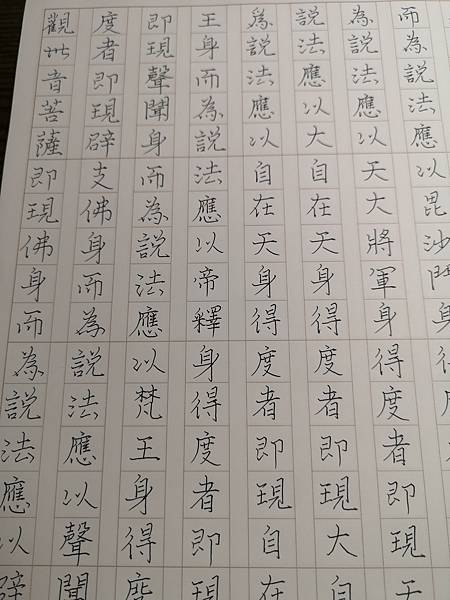 觀世音菩薩即現佛身而為說法應以辟
度者即現辟支佛身而為說法應以聲聞
即現聲聞身而為說法應以梵王身得度
王身而為說法應以帝釋身得度者即現
為說法應以自在天身得度者即現自在
說法應以大自在天身得度者即現大自
為說法應以天大將軍身得度者即現天
而為說法應以毘沙門身得